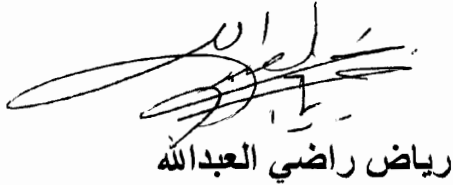 رياض راضي العبدالله